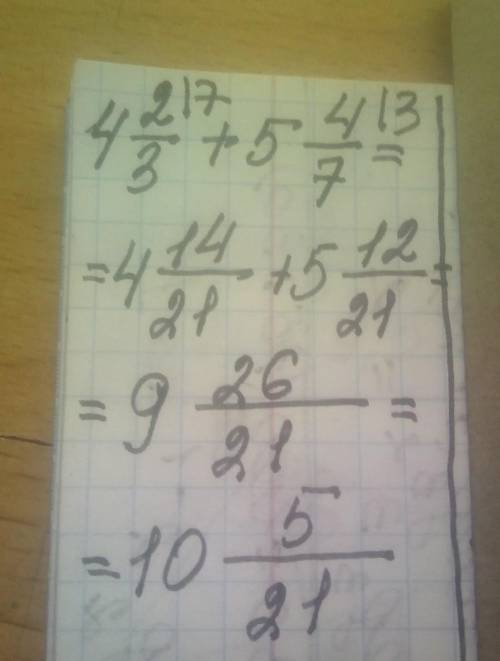 4 2/3 |7 + 5 4/7 |3 =
= 4 14/21 + 5 12/21 =
= 9 26/21 =
= 10 5/21